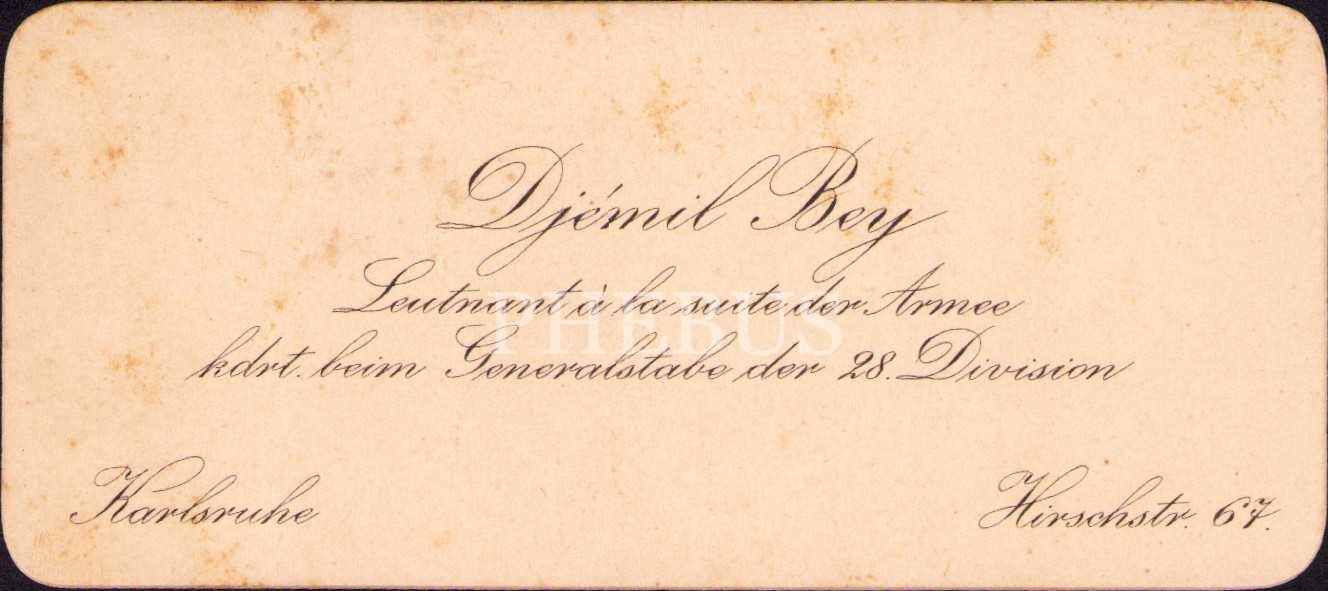 Djémil Bey
Leutnant à la suite der Armee
PHEBUS
kdrt. beim Generalstabe der 28. Division
Karlsruhe
Hirschstr. 67.